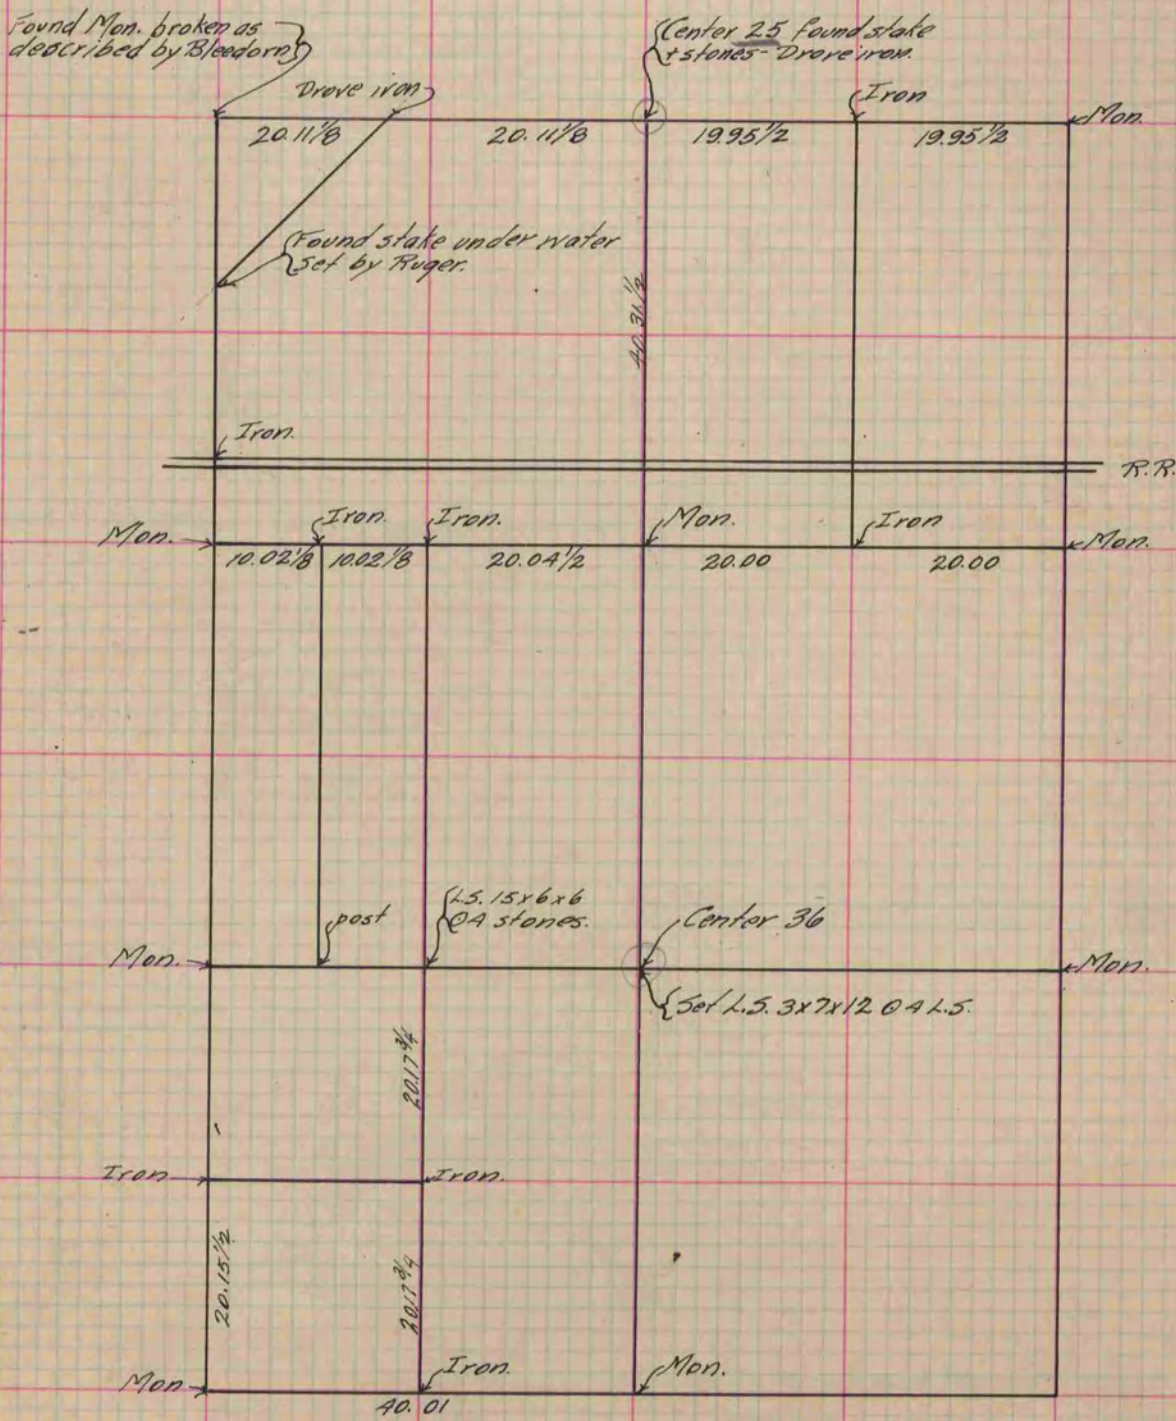 Found Mon. broken as
described by Bleedorn
Center 25 found stake
+ stones - Drove iron.
Drove iron
Iron
Mon.
20.11 1/8
20.11 1/8
19.95 1/2
19.95 1/2
Found stake under water
Set by Ruger.
40.31 1/2
Iron.
R.R.
Mon.
Iron
Iron.
Mon.
Iron
Mon.
10.02 1/8
10.02 1/8
20.04 1/2
20.00
20.00
post
L.S. 15x6x6
@ 4 stones.
Center 36
Mon.
Mon.
Set L.S. 3x7x12 @ 4 L.S.
20.17 3/4
Iron
Iron.
20.15 1/2
20.17 3/4
Mon
Iron.
Mon.
40.01